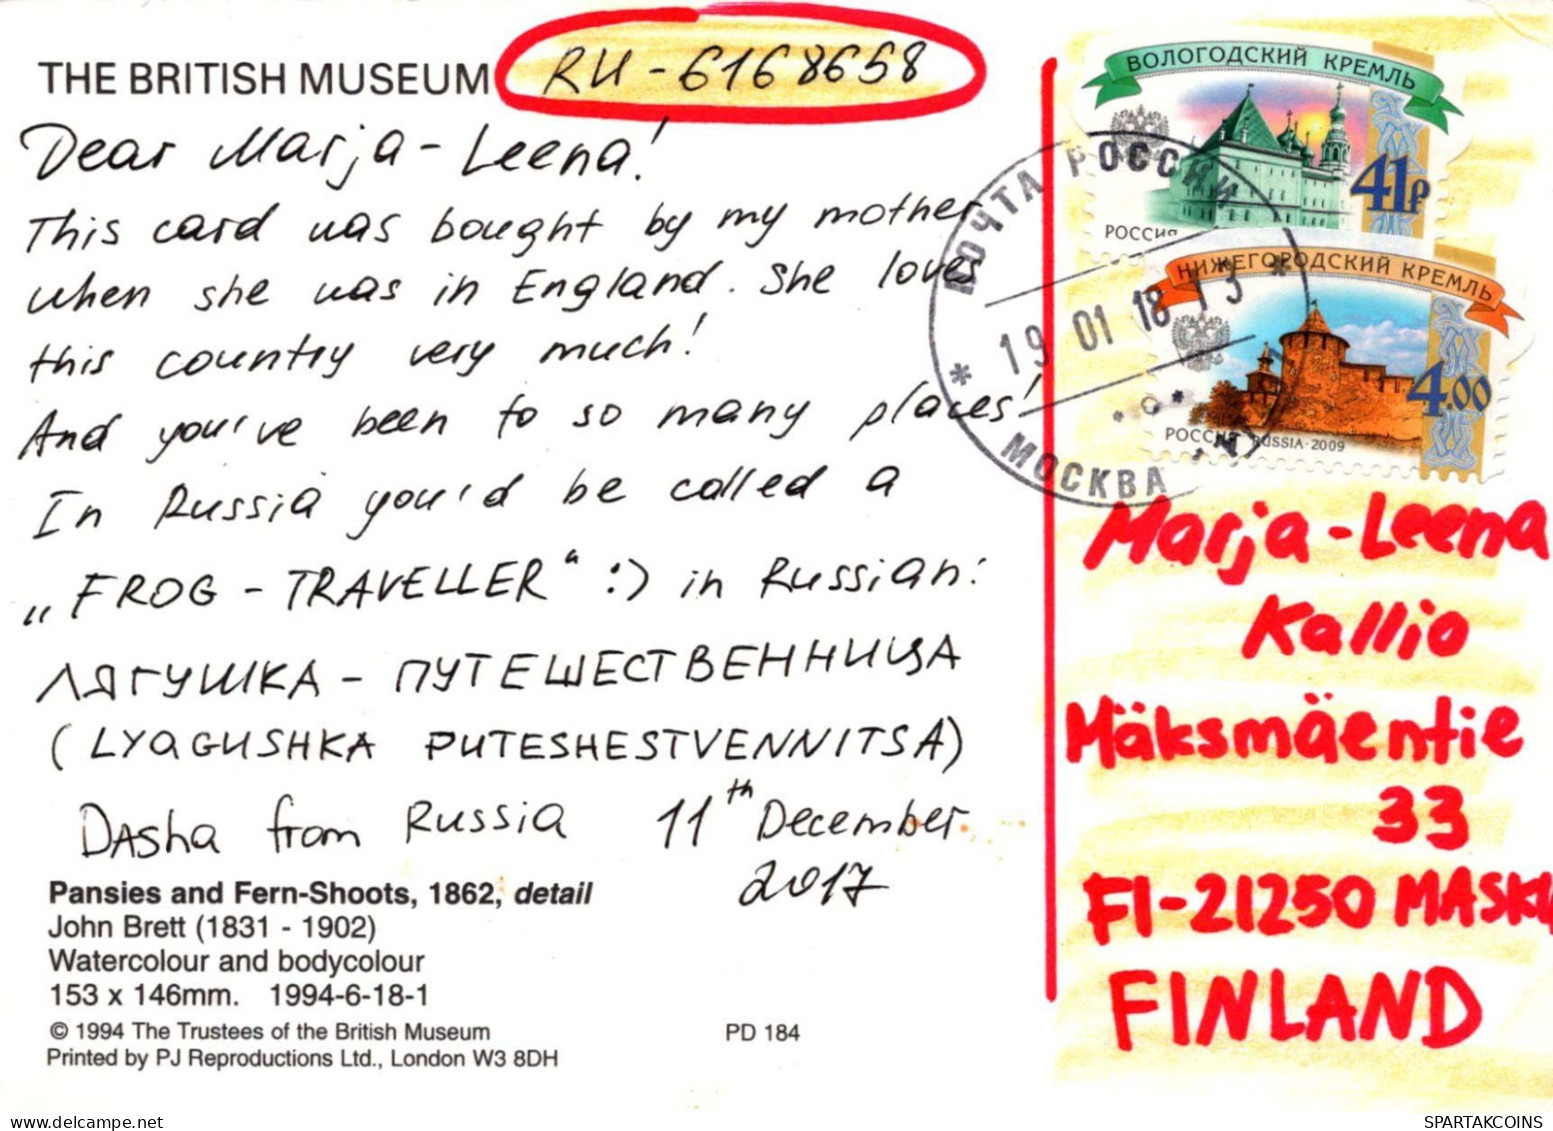 THE BRITISH MUSEUM
RU - 6168658
Dear Marja-Leena!
This card was bought by my mother
when she was in England. She loves
this country very much!
And you've been to so many places!
In Russia you'd be called a
„FROG - TRAVELLER“ :) in Russian:
ЛЯГУШКА - ПУТЕШЕСТВЕННИЦА
(LYAGUSHKA PUTESHESTVENNITSA)
Dasha from Russia 11th December
2017
Pansies and Fern-Shoots, 1862, detail
John Brett (1831 - 1902)
Watercolour and bodycolour
153 x 146mm. 1994-6-18-1
© 1994 The Trustees of the British Museum
PD 184
Printed by PJ Reproductions Ltd., London W3 8DH
ВОЛОГОДСКИЙ КРЕМЛЬ
41р
РОССИЯ
НИЖЕГОРОДСКИЙ КРЕМЛЬ
4.00
РОССИЯ RUSSIA·2009
ПОЧТА РОССИИ
* 19 01 18 13 *
МОСКВА
Marja-Leena
Kallio
Mäksmäentie
33
FI-21250 MASKU
FINLAND
https://www.delcampe.net
SPARTAKCOINS